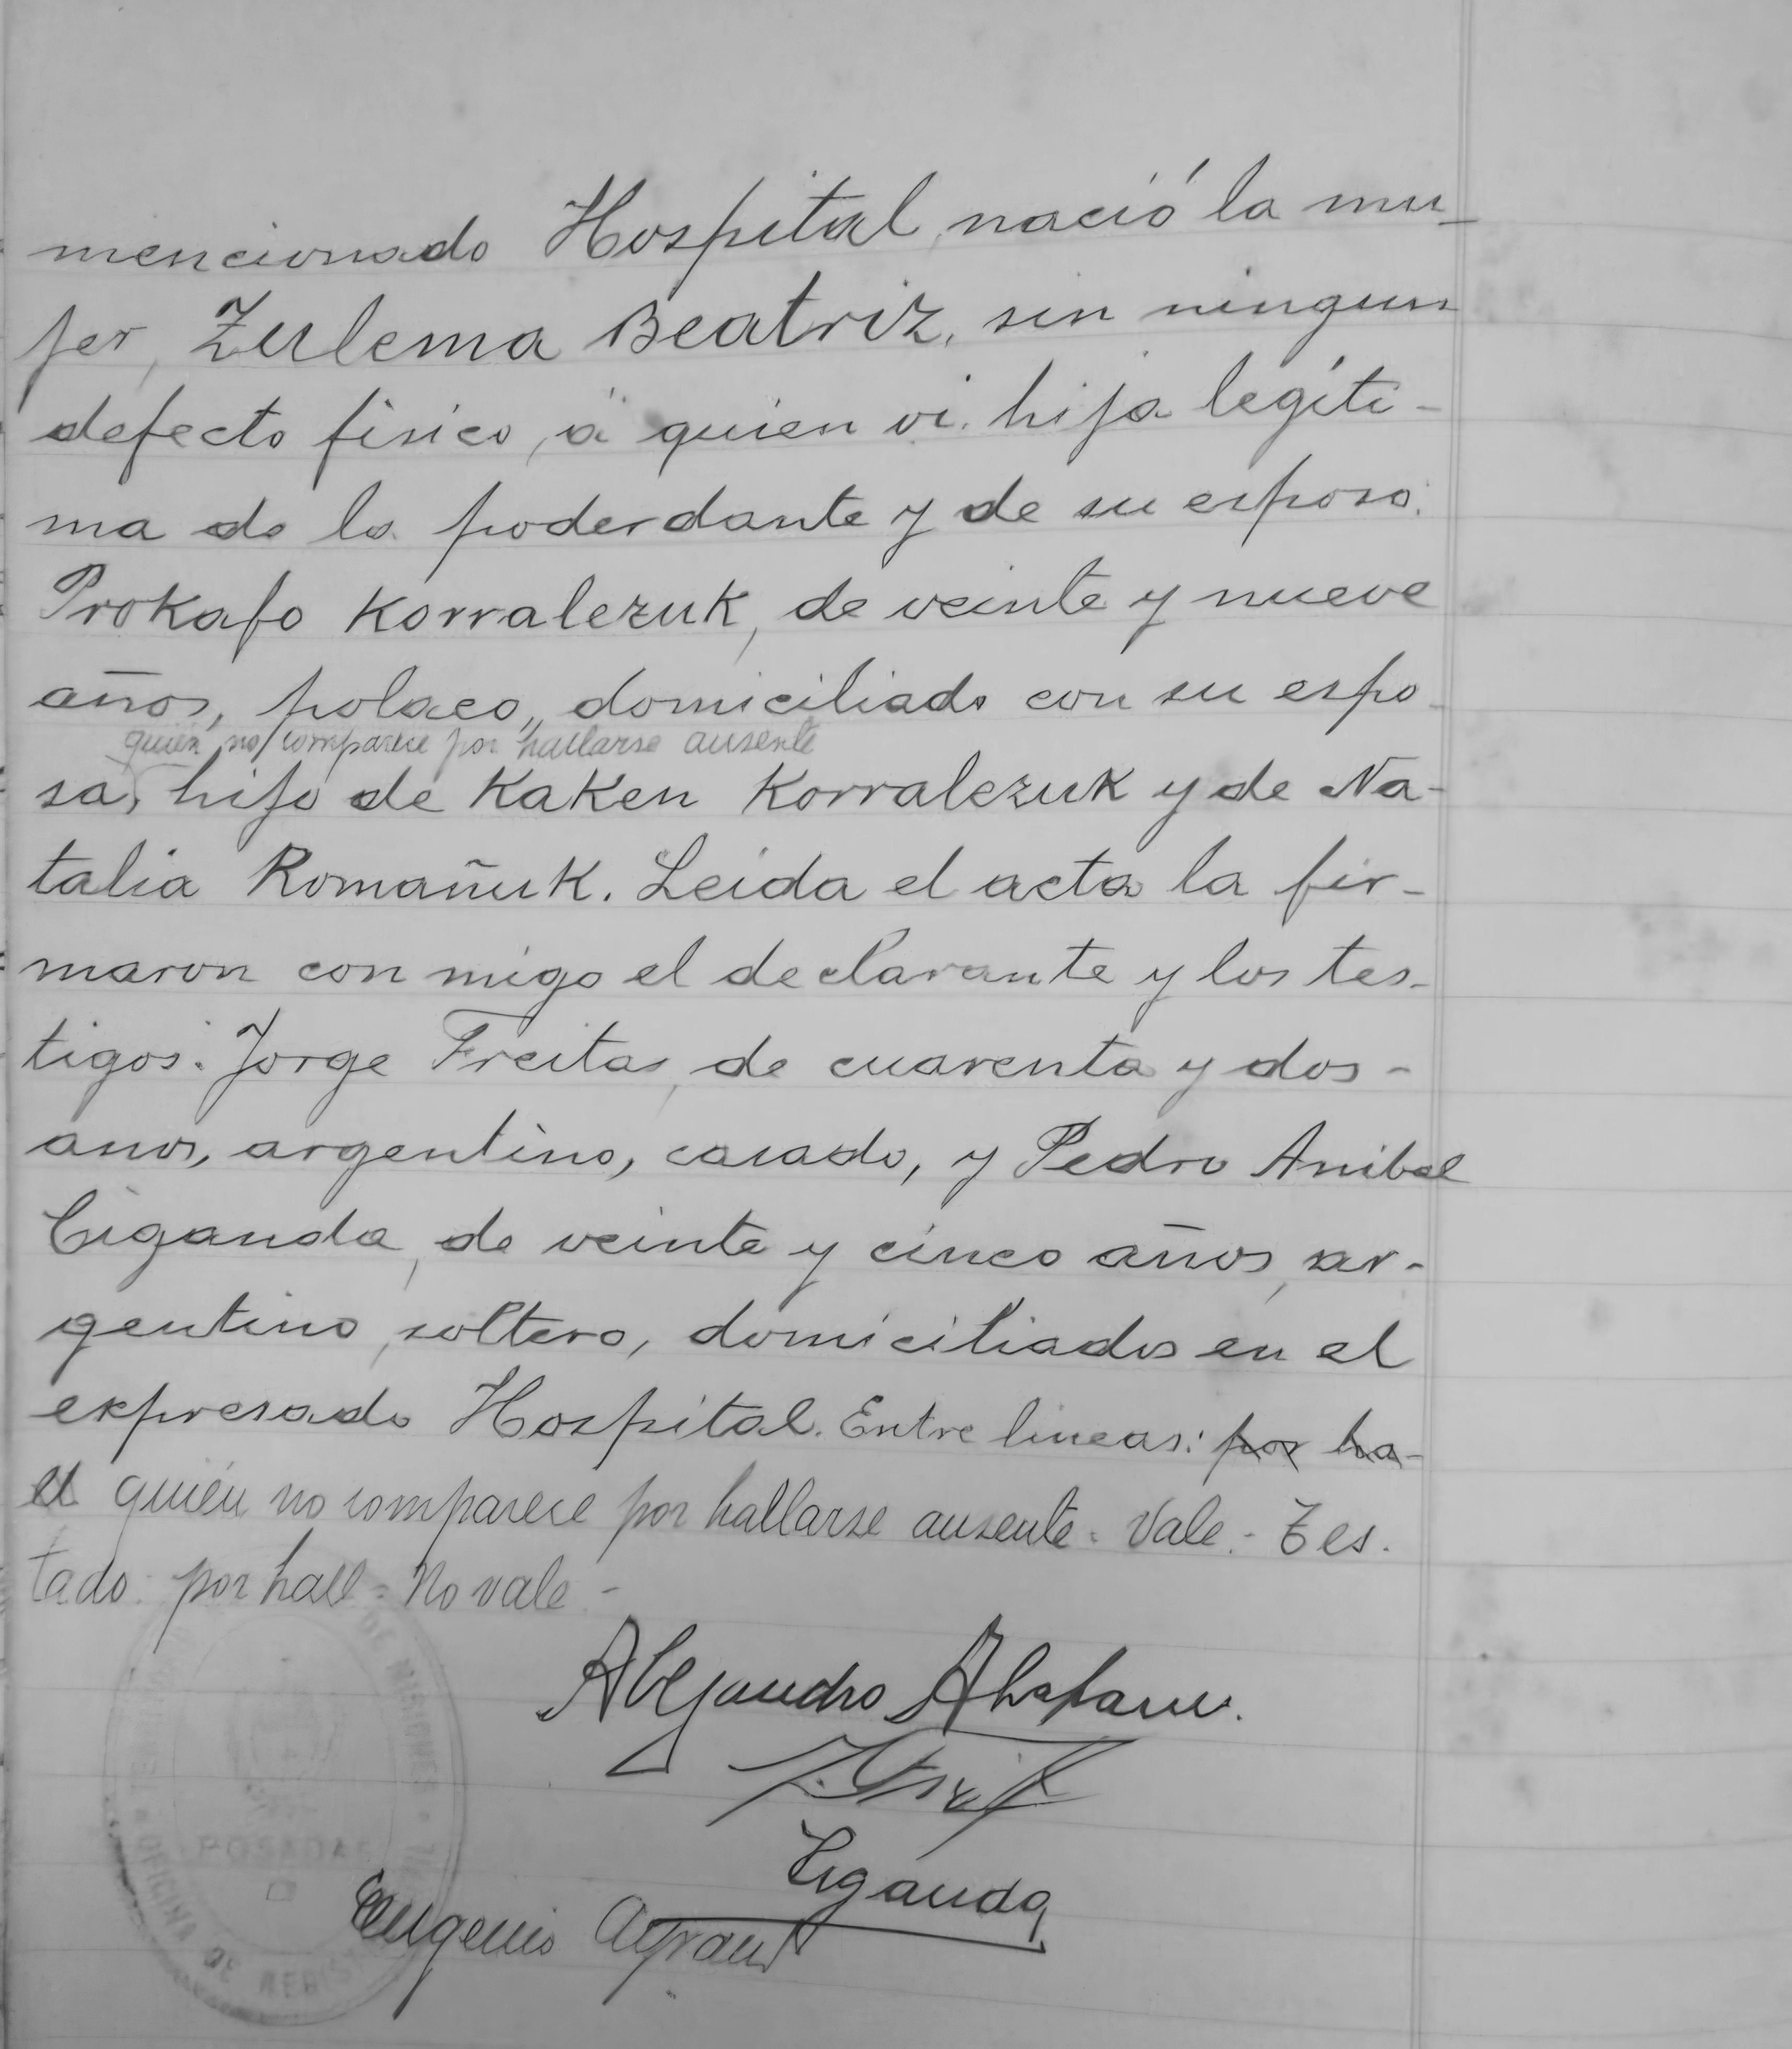 mencionado Hospital, nació la mu-
jer, Zulema Beatriz, sin ningun
defecto fisico, á quien vi. hija legíti-
ma de la poderdante y de su esposo:
Prokafo Korralezuk, de veinte y nueve
años, polaco, domiciliado con su espo-
quién no comparece por hallarse ausente
sa, hijo de Kaken Korralezuk y de Na-
talia Romañuk. Leida el acta la fir-
maron con migo el declarante y los tes-
tigos: Jorge Freitas, de cuarenta y dos -
anos, argentino, casado, y Pedro Anibal
Ciganda, de veinte y cinco años, ar-
gentino, soltero, domiciliados en el
expresado Hospital. Entre lineas: por ha-
ll quién no comparece por hallarse ausente. Vale.- Tes.
tado: por hall = No vale -
Alejandro
Ciganda
Eugenio
DE MISIONES
POSADAS
OFICINA DE REGIS